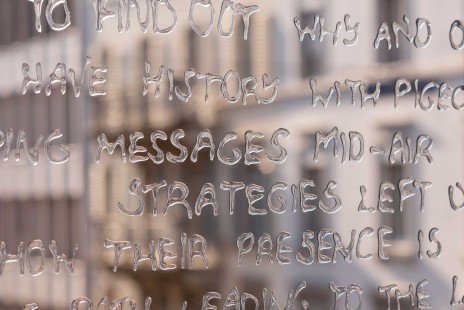 TO FIND OUT WHY AND
HAVE HISTORY WITH PIGEO
PING MESSAGES MID-AIR
STRATEGIES LEFT
HOW THEIR PRESENCE IS
LEADING TO THE